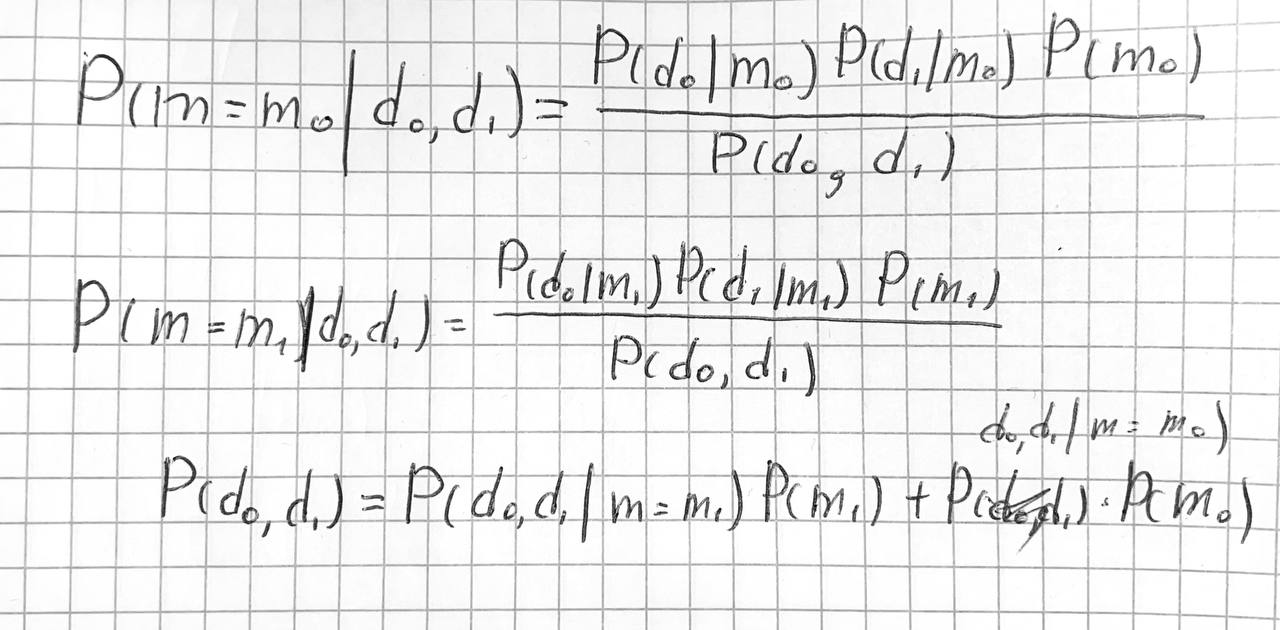 P(m = m₀ | d₀, d₁) = P(d₀ | m₀) P(d₁ | m₀) P(m₀) / P(d₀, d₁)
P(m = m₁ | d₀, d₁) = P(d₀ | m₁) P(d₁ | m₁) P(m₁) / P(d₀, d₁)
d₀, d₁ | m = m₀)
P(d₀, d₁) = P(d₀, d₁ | m = m₁) P(m₁) + P(d₀, d₁) · P(m₀)